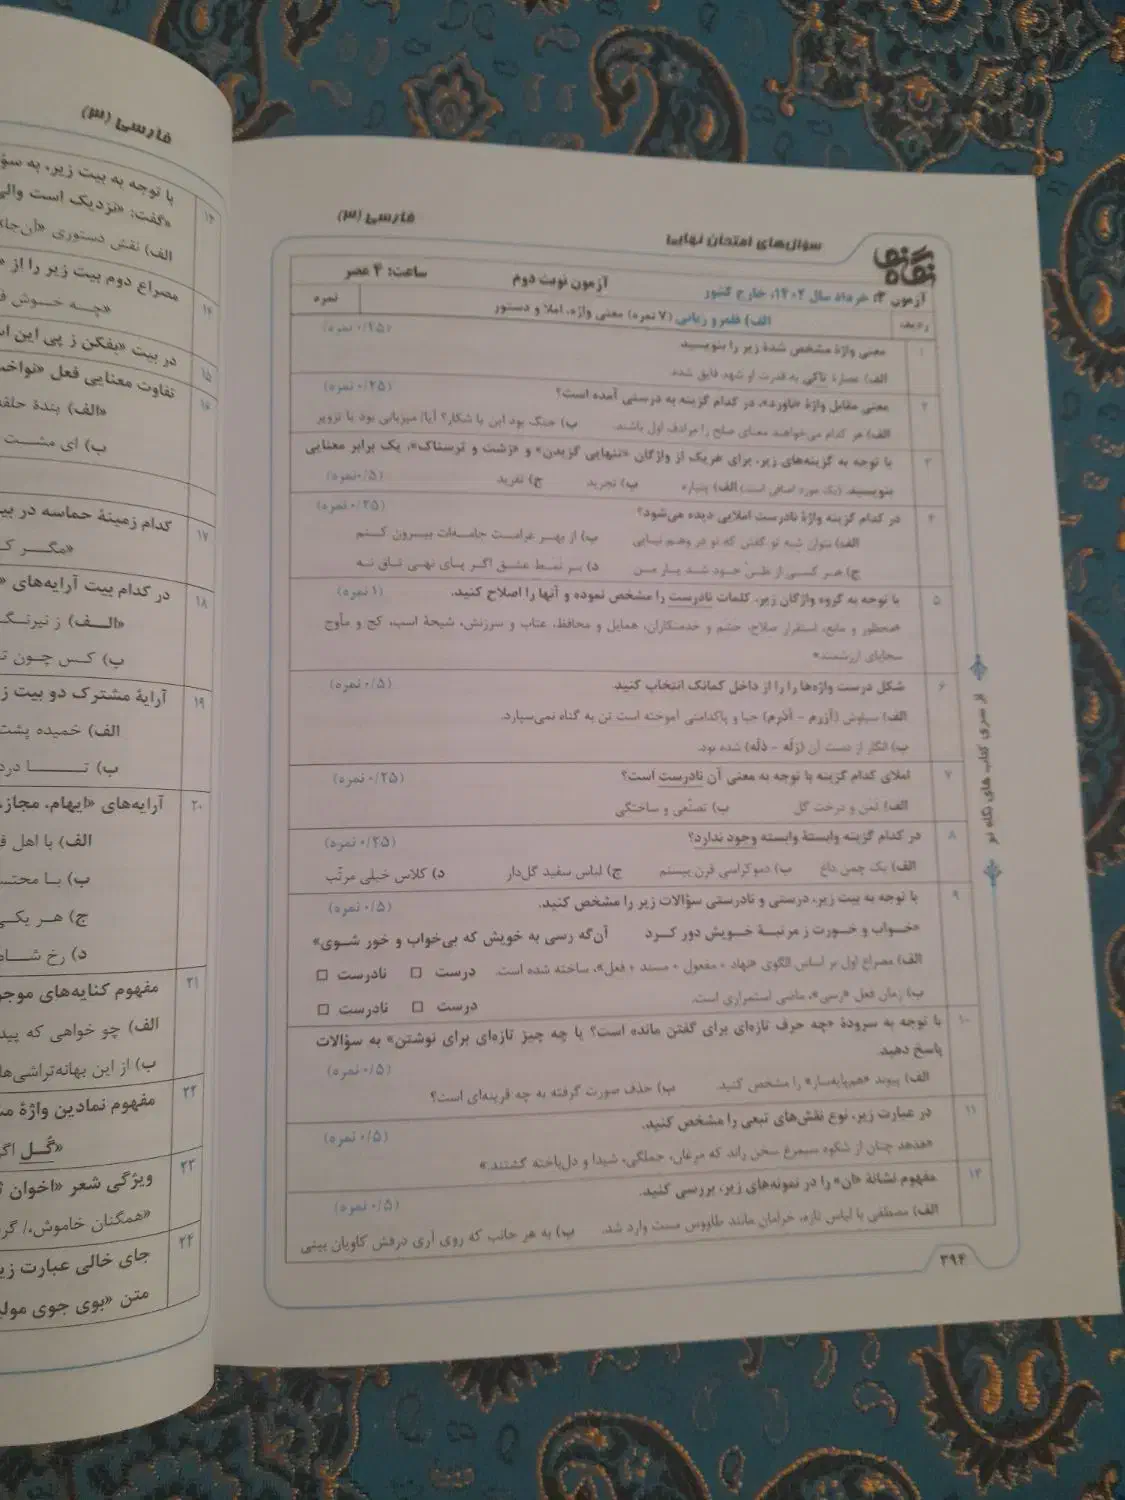 فارسی (۳)
سوال‌های امتحان نهایی
نگاه نو
آزمون ۳: خرداد سال ۱۴۰۲، خارج کشور
آزمون نوبت دوم
ساعت: ۴ عصر
ردیف
الف) قلمرو زبانی (۷ نمره) معنی واژه، املا و دستور
نمره
۱ معنی واژهٔ مشخص شدهٔ زیر را بنویسید (۰/۲۵ نمره)
الف) عصارهٔ تاکی به قدرت او شهد فایق شده.
۲ معنی مقابل واژهٔ «ناورد»، در کدام گزینه به درستی آمده است؟ (۰/۲۵ نمره)
الف) هر کدام می‌خواهند معنای صلح را مرادف اول باشند. ب) جنگ بود این یا شکار؟ آیا/ میزبانی بود یا تزویر
۳ با توجه به گزینه‌های زیر، برای هریک از واژگان «تنهایی گزیدن» و «زشت و ترسناک»، یک برابر معنایی
بنویسید. (یک مورد اضافی است) الف) پتیاره ب) تجرید ج) تفرید (۰/۵ نمره)
۴ در کدام گزینه واژهٔ نادرست املایی دیده می‌شود؟ (۰/۲۵ نمره)
الف) نتوان شبه تو گفتن که تو در وهم نیایی ب) از بهر غرامت جامه‌ات بیرون کنم
ج) هر کسی از ظنّ خود شد یار من د) بر نمط عشق اگر پای نهی تاق نه
۵ با توجه به گروه واژگان زیر، کلمات نادرست را مشخص نموده و آنها را اصلاح کنید. (۱ نمره)
«محظور و مانع، استقرار صلاح، حشم و خدمتکاران، همایل و محافظ، عتاب و سرزنش، شیحهٔ اسب، کج و ماوج
سجایای ارزشمند»
۶ شکل درست واژه‌ها را را از داخل کمانک انتخاب کنید. (۰/۵ نمره)
الف) سیاوش (آزرم - آذرم) حیا و پاکدامنی آموخته است تن به گناه نمی‌سپارد.
ب) انگار از دست آن (زلّه - ذلّه) شده بود.
۷ املای کدام گزینه با توجه به معنی آن نادرست است؟ (۰/۲۵ نمره)
الف) ثمن و درخت گل ب) تصنّعی و ساختگی
۸ در کدام گزینه وابستهٔ وابسته وجود ندارد؟ (۰/۲۵ نمره)
الف) یک چمن داغ ب) دموکراسی قرن بیستم ج) لباس سفید گل‌دار د) کلاس خیلی مرتّب
۹ با توجه به بیت زیر، درستی و نادرستی سؤالات زیر را مشخص کنید. (۰/۵ نمره)
«خواب و خورت ز مرتبهٔ خویش دور کرد آن‌گه رسی به خویش که بی‌خواب و خور شوی»
الف) مصراع اول بر اساس الگوی «نهاد + مفعول + مسند + فعل»، ساخته شده است. درست □ نادرست □
ب) زمان فعل «رسی»، ماضی استمراری است. درست □ نادرست □
۱۰ با توجه به سرودهٔ «چه حرف تازه‌ای برای گفتن مانده است؟ یا چه چیز تازه‌ای برای نوشتن» به سؤالات
پاسخ دهید. (۰/۵ نمره)
الف) پیوند «هم‌پایه‌ساز» را مشخص کنید. ب) حذف صورت گرفته به چه قرینه‌ای است؟
۱۱ در عبارت زیر، نوع نقش‌های تبعی را مشخص کنید. (۰/۵ نمره)
«هدهد چنان از شکوه سیمرغ سخن راند که مرغان، جملگی، شیدا و دل‌باخته گشتند.»
۱۲ مفهوم نشانهٔ «ان» را در نمونه‌های زیر، بررسی کنید. (۰/۵ نمره)
الف) مصطفی با لباس تازه، خرامان مانند طاووس مست وارد شد. ب) به هر جانب که روی آری درفش کاویان بینی
از سری کتاب های نگاه نو
۳۹۴
فارسی (۳)
با توجه به بیت زیر، به
«گفت: «نزدیک است والی
الف) نقش دستوری «آن‌جا»
مصراع دوم بیت زیر را از
۱۴
«چه خوش
۱۵ در بیت «بفکن ز پی این
۱۶ تفاوت معنایی فعل
«الف) بندهٔ حلقه
ب) ای مشت
۱۷ کدام زمینهٔ حماسه در
«مگر
۱۸ در کدام بیت آرایه‌های
«الف) ز
ب) کس چون
۱۹ آرایهٔ مشترک دو بیت
الف) خمیده پشت
ب) تا
۲۰ آرایه‌های «ایهام، مجاز،
الف) با اهل
ب) با
ج) هر یکی
د) رخ
۲۱ مفهوم کنایه‌های
الف) چو خواهی که
ب) از این بهانه‌تراشی‌ها
۲۲ مفهوم نمادین واژهٔ
«گُل
۲۳ ویژگی شعر «اخوان
«همگنان خاموش،/
۲۴ جای خالی عبارت
متن «بوی جوی